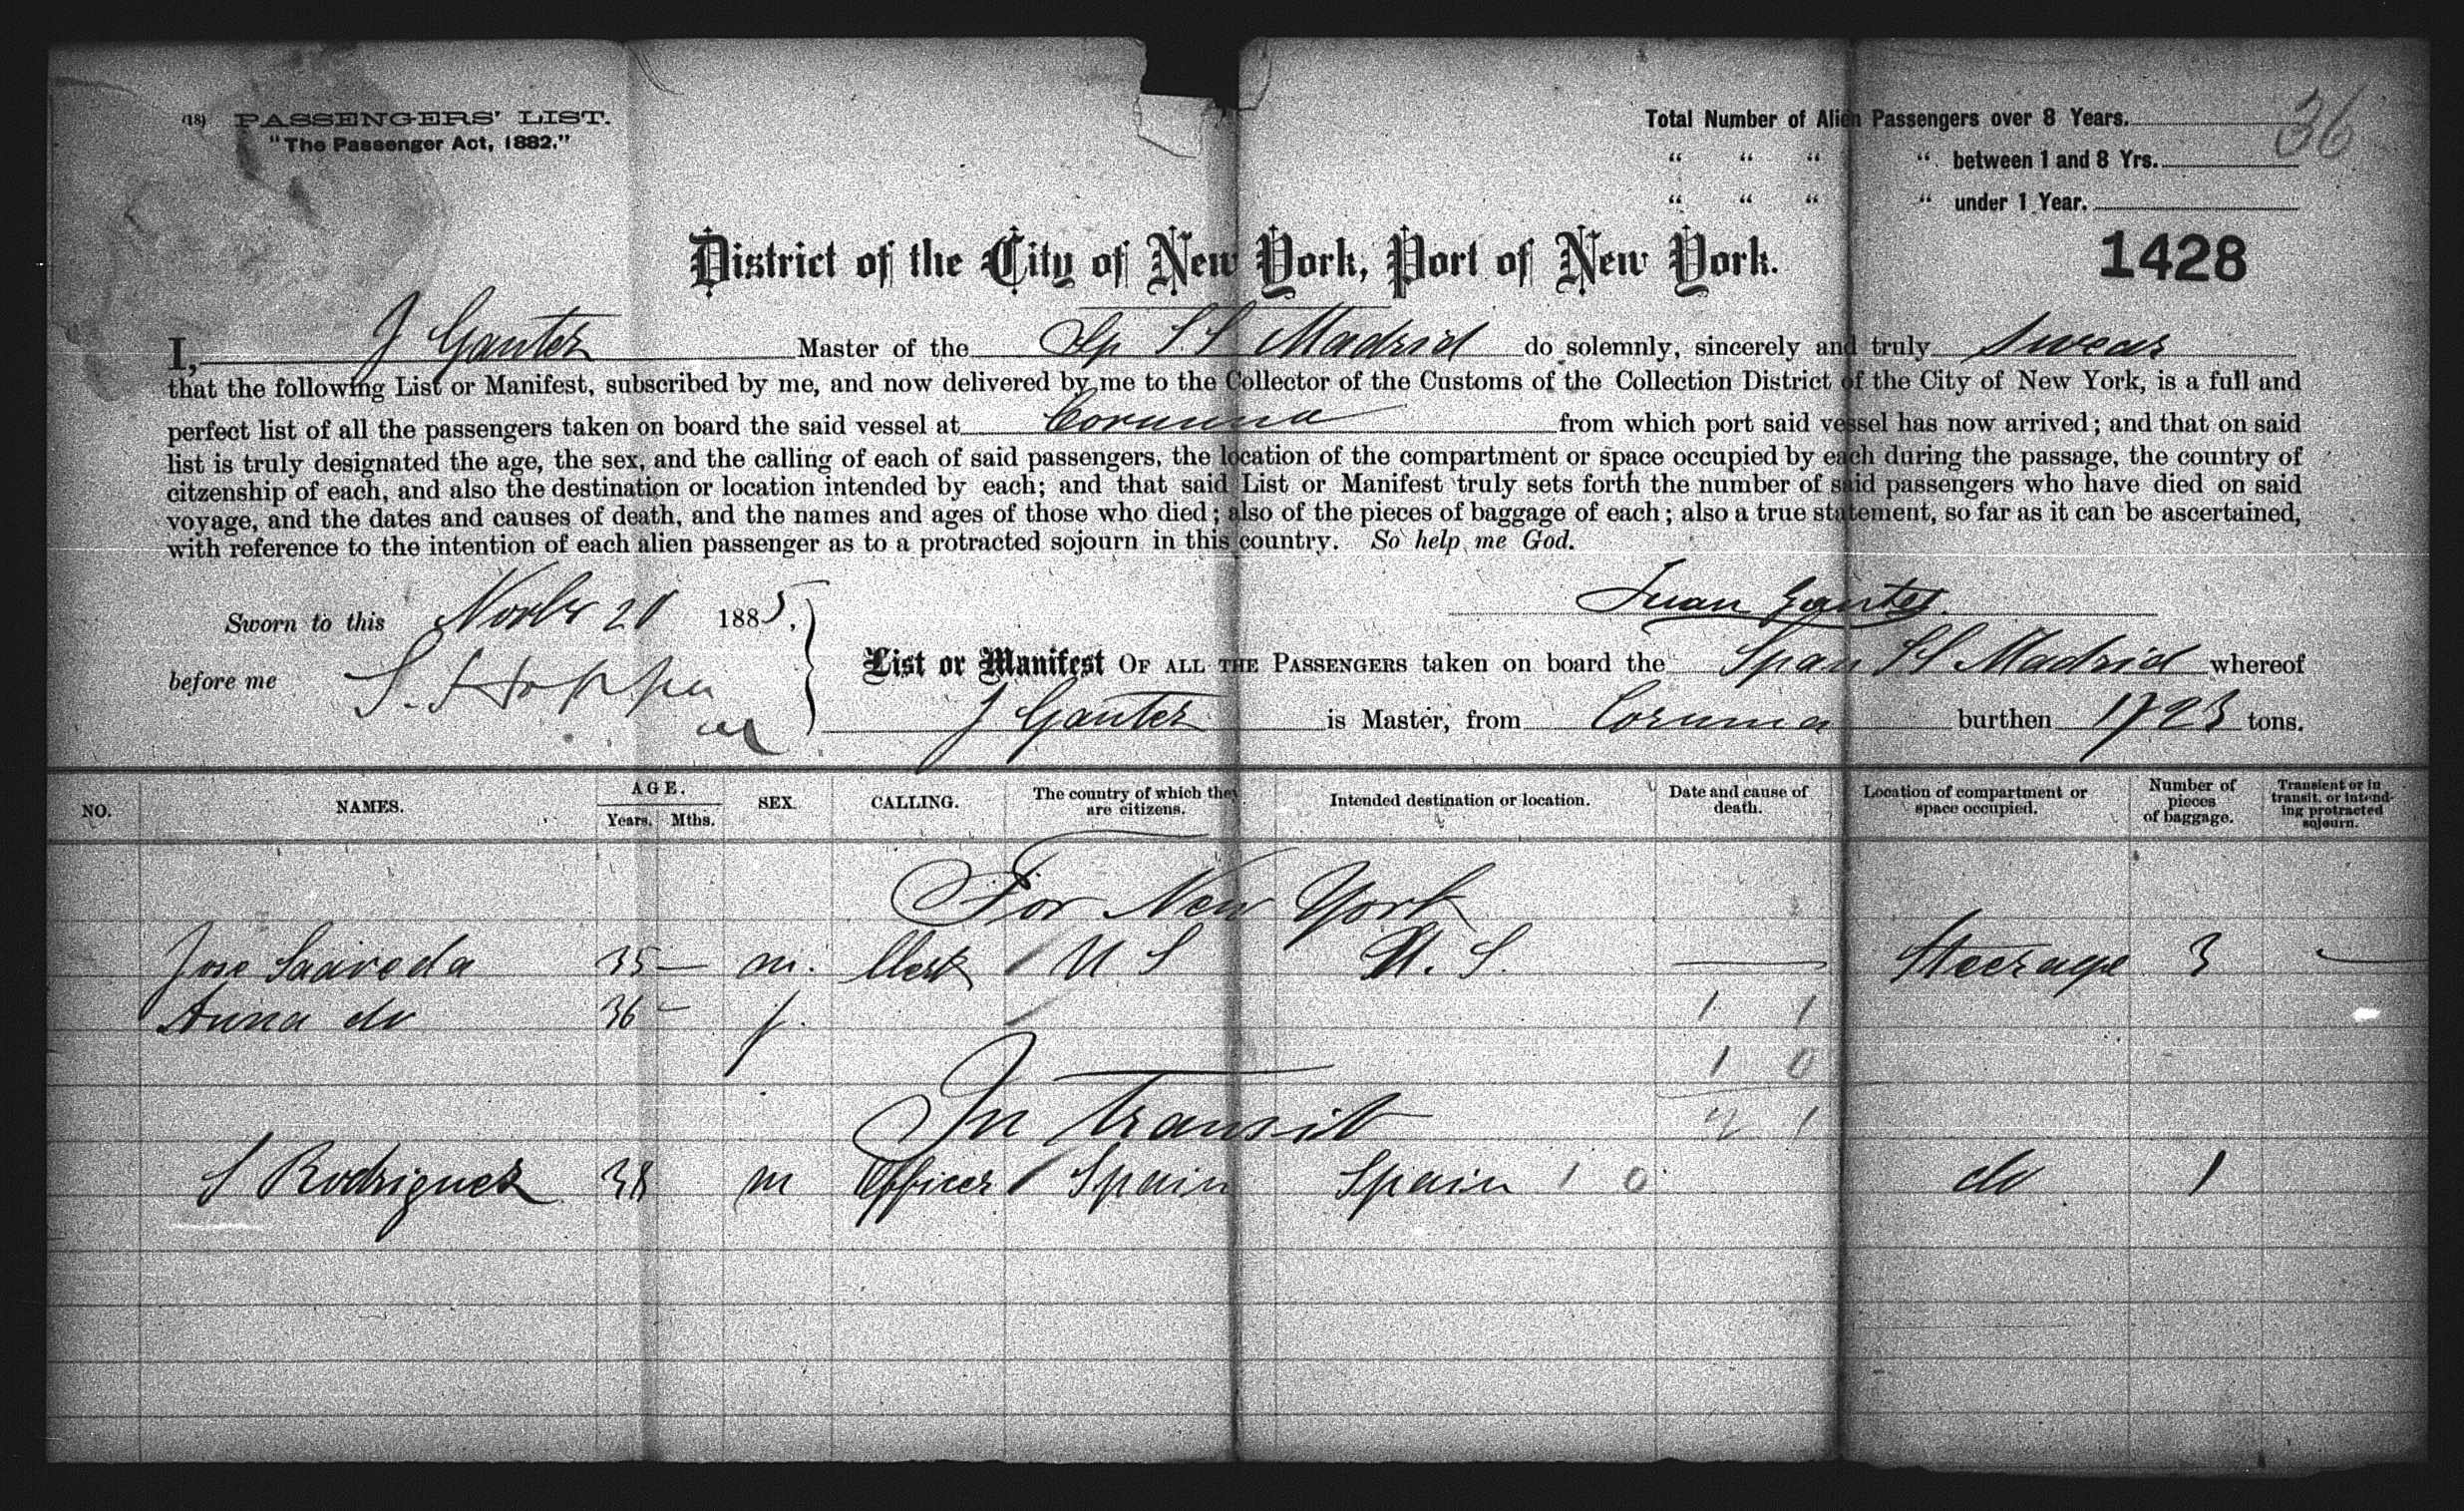 (18) PASSENGERS' LIST.
"The Passenger Act, 1882."
Total Number of Alien Passengers over 8 Years.
" " " " between 1 and 8 Yrs.
" " " " under 1 Year.
36
District of the City of New York, Port of New York.
1428
I, J Ganter Master of the Sp SS Madrid do solemnly, sincerely and truly swear
that the following List or Manifest, subscribed by me, and now delivered by me to the Collector of the Customs of the Collection District of the City of New York, is a full and
perfect list of all the passengers taken on board the said vessel at Corunna from which port said vessel has now arrived; and that on said
list is truly designated the age, the sex, and the calling of each of said passengers, the location of the compartment or space occupied by each during the passage, the country of
citzenship of each, and also the destination or location intended by each; and that said List or Manifest truly sets forth the number of said passengers who have died on said
voyage, and the dates and causes of death, and the names and ages of those who died; also of the pieces of baggage of each; also a true statement, so far as it can be ascertained,
with reference to the intention of each alien passenger as to a protracted sojourn in this country. So help me God.
Juan Ganter
Sworn to this Novbr 20 1885,
before me
List or Manifest OF ALL THE PASSENGERS taken on board the Span SS Madrid whereof
J Ganter is Master, from Corunna burthen 1723 tons.
NO. NAMES. AGE. Years. Mths. SEX. CALLING. The country of which they are citizens. Intended destination or location. Date and cause of death. Location of compartment or space occupied. Number of pieces of baggage. Transient or in transit, or intending protracted sojourn.
For New York
Jose Saaveda 35 — m. Clerk U S U. S. — Steerage 3 —
Anna do 36 — f. 1 1
1 0
In Transit 2 1
S Rodriguez 38 m Officer Spain Spain 1 0 do 1